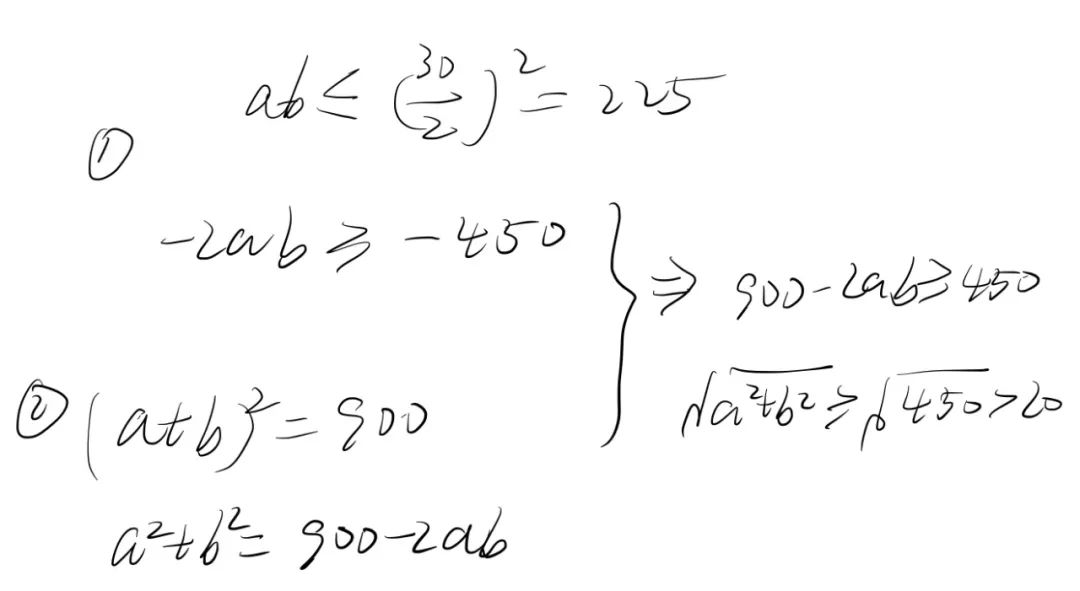 ab ≤ (30/2)² = 225
①
-2ab ≥ -450
} ⇒ 900-2ab ≥ 450
√a²+b² ≥ √450 > 20
② (a+b)² = 900
a²+b² = 900-2ab